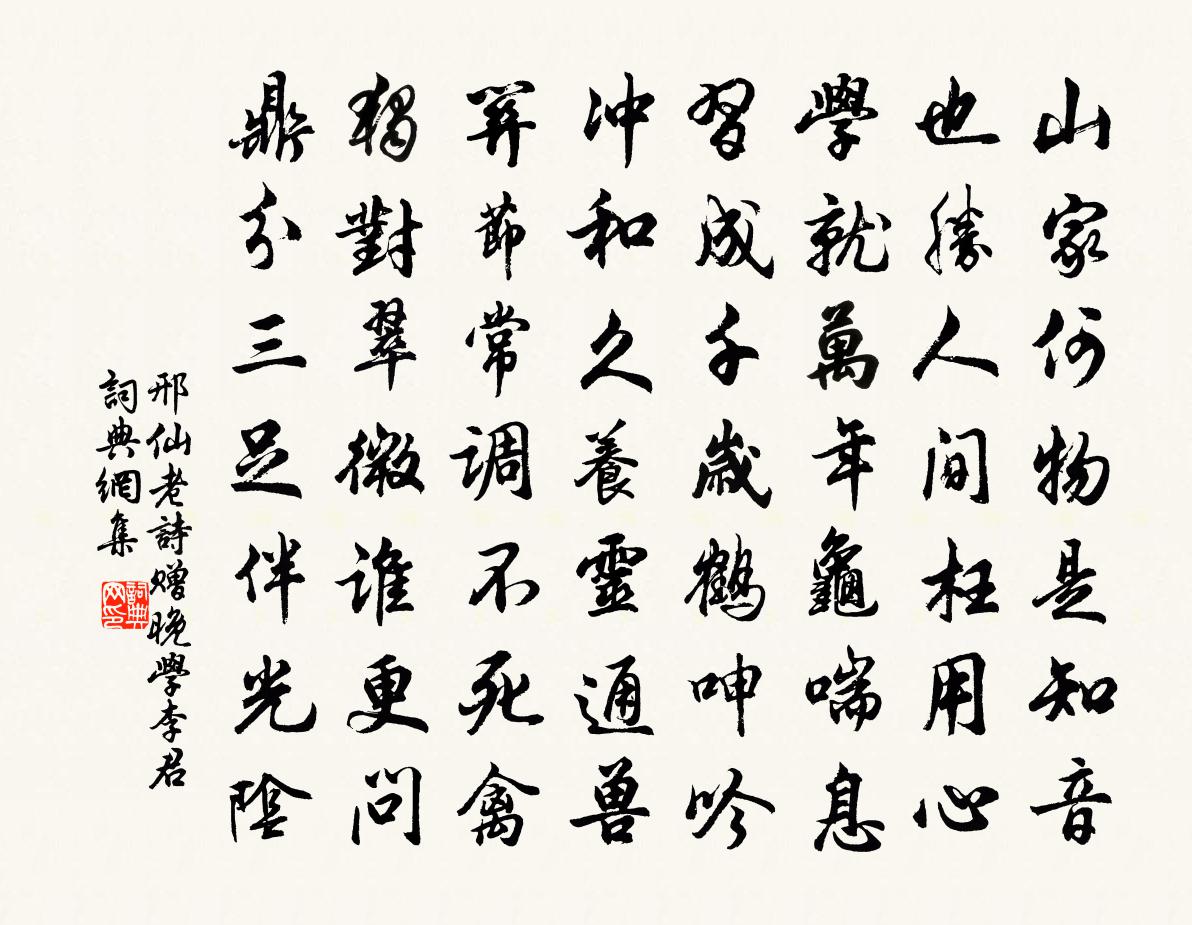 山家何物是知音
也勝人间枉用心
學就萬年龜喘息
習成千歲鶴呻吟
冲和久養靈通兽
關節常调不死禽
獨對翠微谁更问
鼎分三足伴光陰
邢仙老詩赠晚學李君
詞典網集
詞典
网印